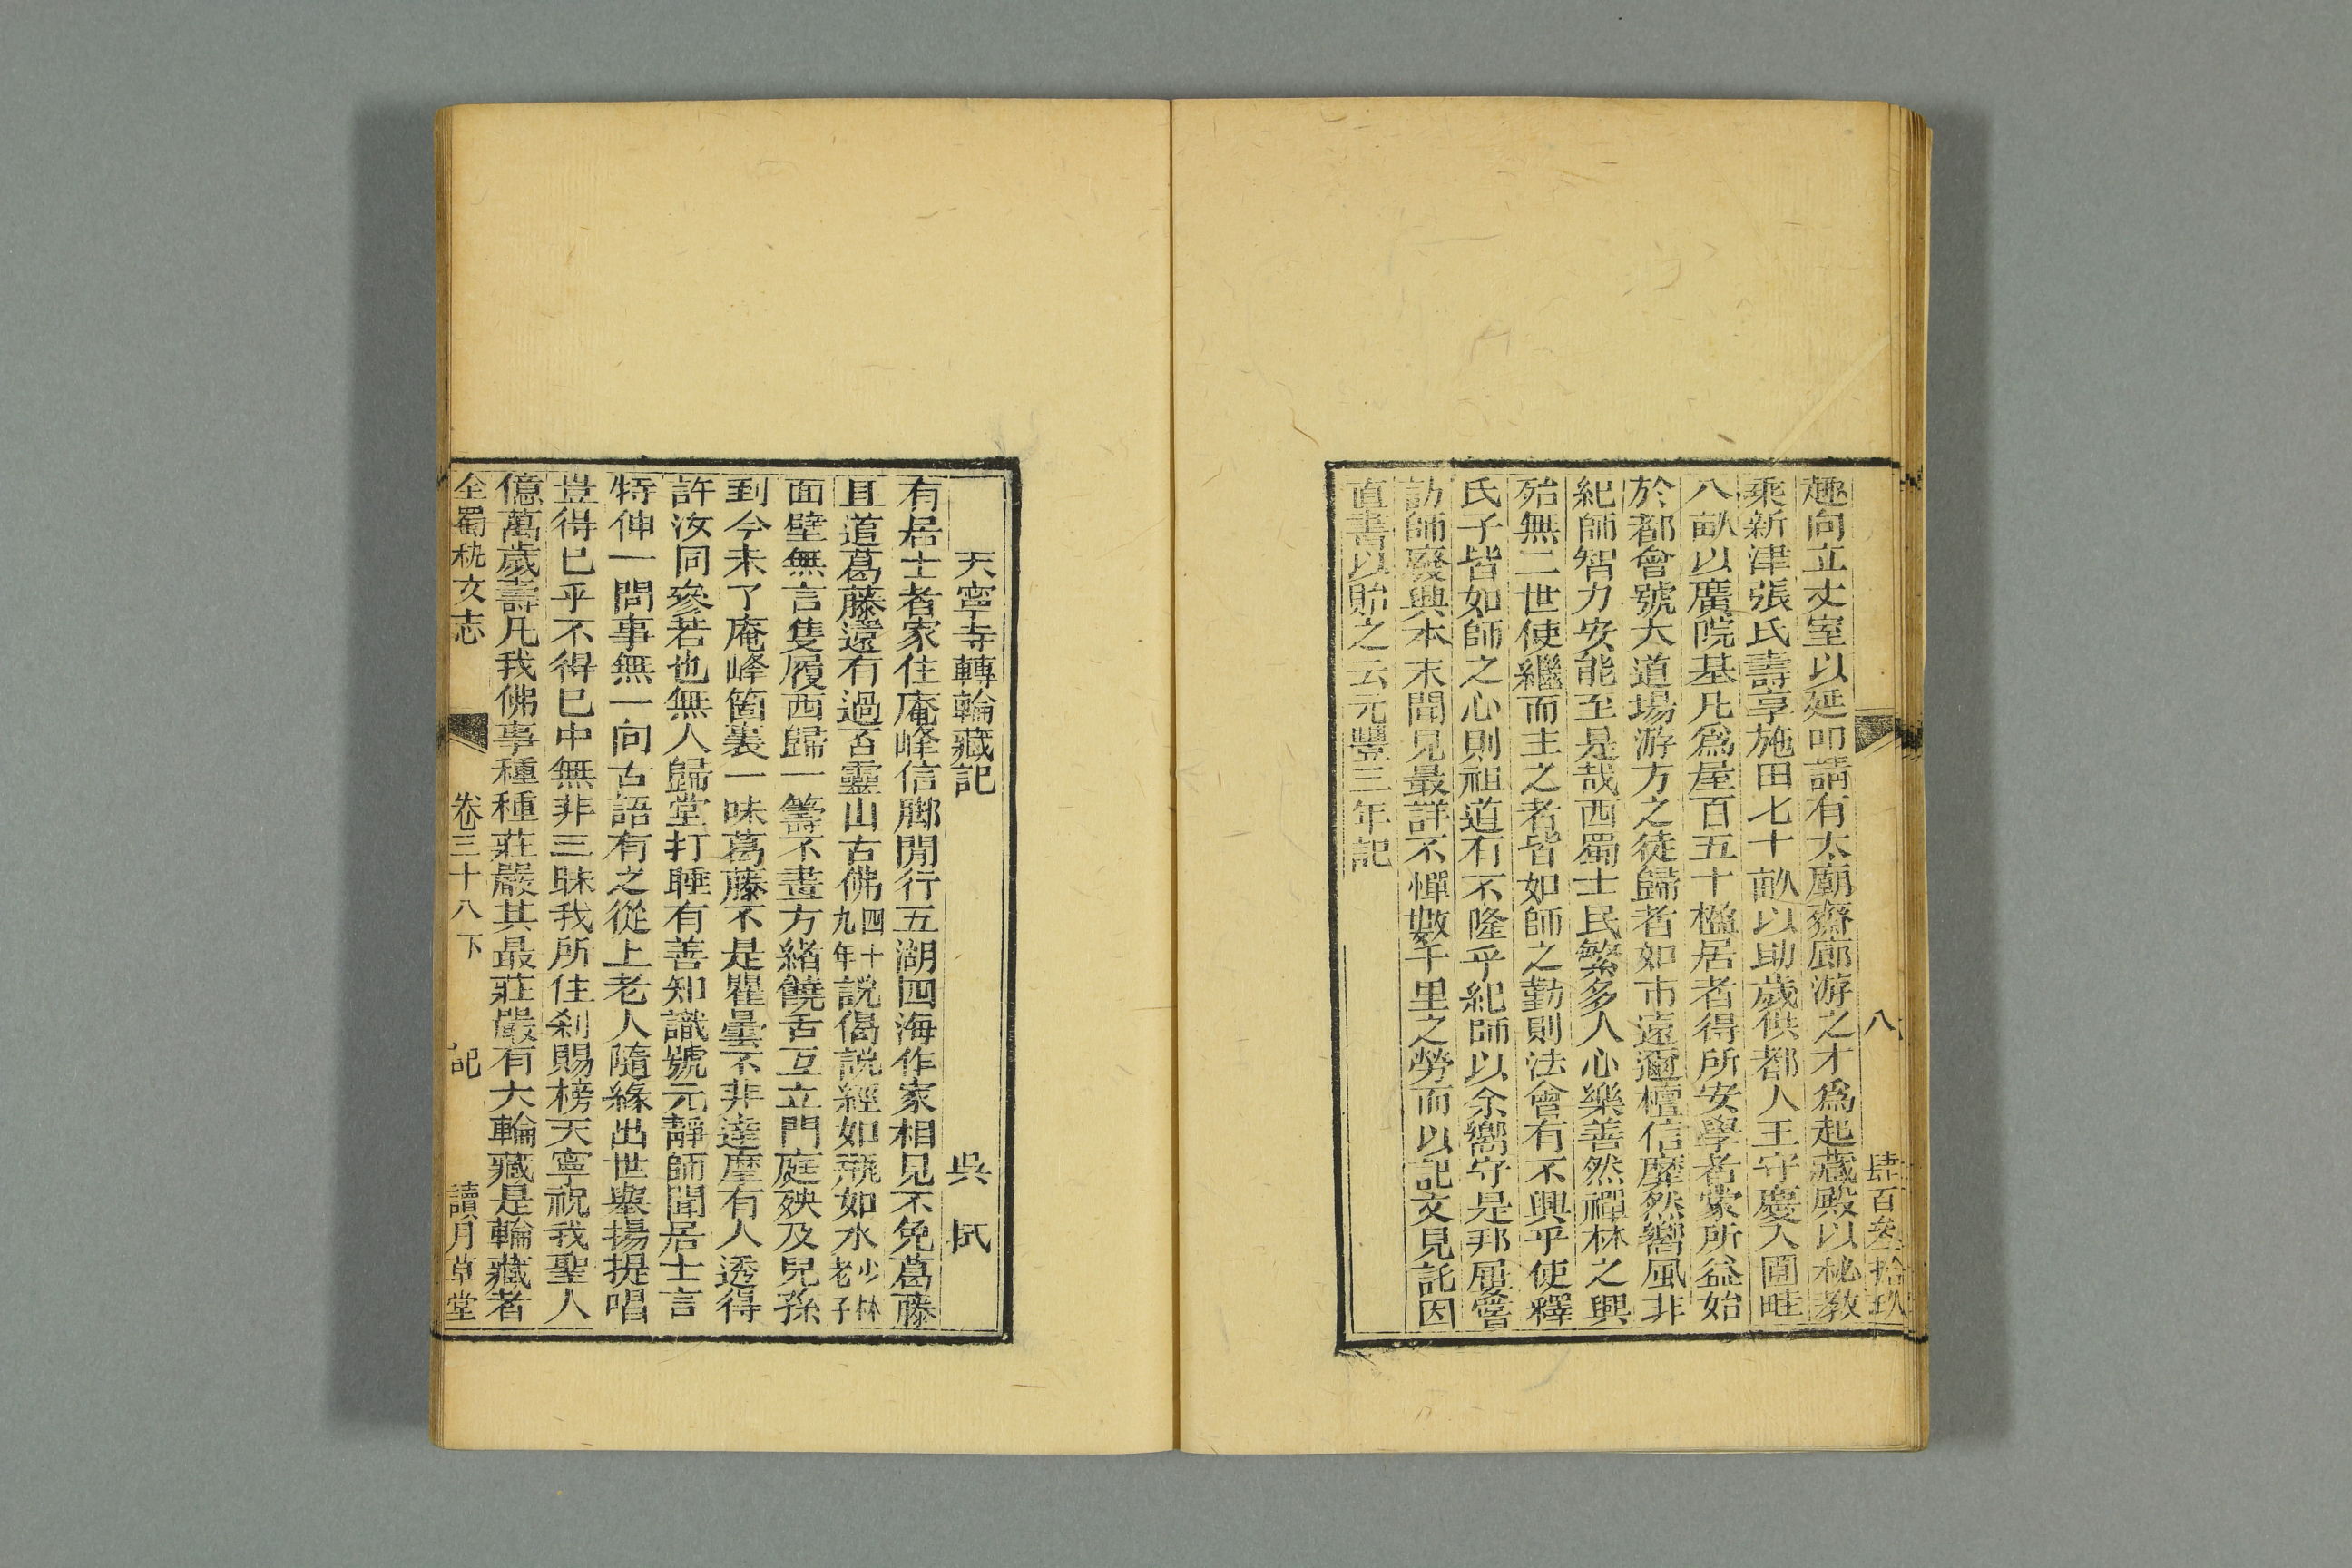 八 肆百叁拾玖
趣向立丈室以延叩請有太廟齋郎游之才爲起藏殿以秘敎
乘新津張氏壽亨施田七十畝以助歲供都人王守慶入圃畦
八畝以廣院基凡爲屋百五十楹居者得所安學者蒙所益始
於都會號大道場游方之徒歸者如市遠邇檀信靡然嚮風非
紀師智力安能至是哉西蜀士民繁多人心樂善然禪林之興
殆無二世使繼而主之者皆如師之勤則法會有不興乎使釋
氏子皆如師之心則祖道有不隆乎紀師以余嚮守是邦屢嘗
訪師廢興本末聞見最詳不憚數千里之勞而以記文見託因
直書以貽之云元豐三年記
天寧寺轉輪藏記 吳拭
有居士者家住庵峰信腳閒行五湖四海作家相見不免葛藤
且道葛藤還有過否靈山古佛四十九年說偈說經如瓶如水少林老子
面壁無言隻履西歸一籌不畫方緒饒舌互立門庭殃及兒孫
到今未了庵峰箇裏一味葛藤不是瞿曇不非達摩有人透得
許汝同參若也無人歸堂打睡有善知識號元靜師聞居士言
特伸一問事無一向古語有之從上老人隨緣出世舉揚提唱
豈得已乎不得已中無非三昧我所住刹賜榜天寧祝我聖人
億萬歲壽凡我佛事種種莊嚴其最莊嚴有大輪藏是輪藏者
全蜀秇文志 卷三十八下 記 讀月草堂